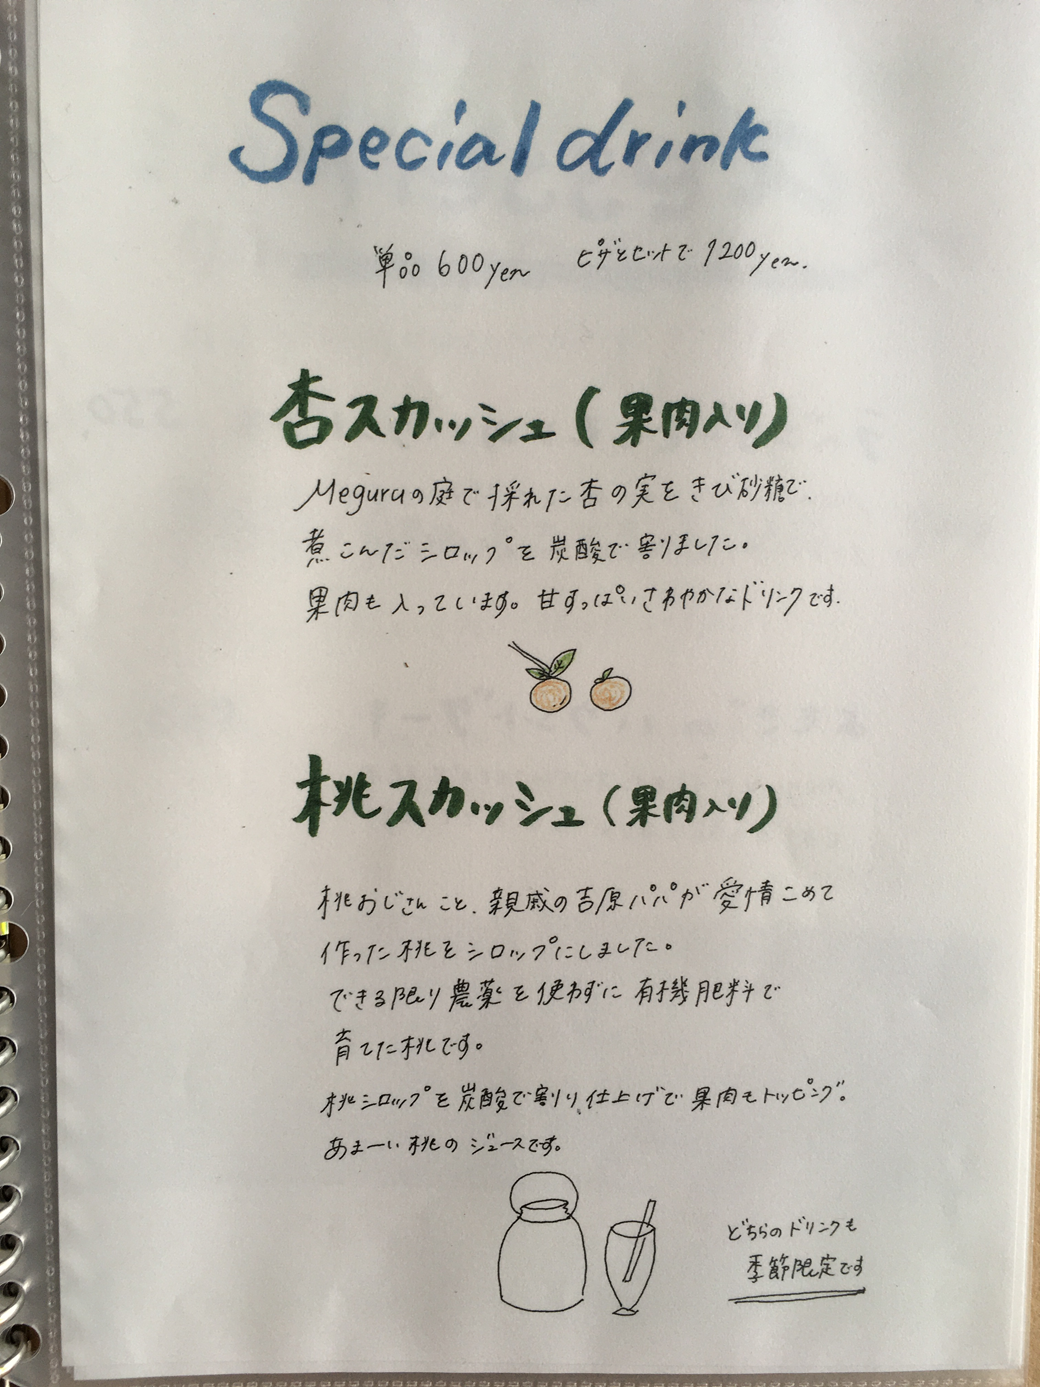 Special drink
単品 600yen ピザとセットで 1200yen.
杏スカッシュ(果肉入り)
Meguruの庭で採れた杏の実をきび砂糖で、
煮こんだシロップを炭酸で割りました。
果肉も入っています。甘すっぱいさわやかなドリンクです.
桃スカッシュ(果肉入り)
桃おじさんこと、親戚の吉原パパが愛情こめて
作った桃をシロップにしました。
できる限り農薬を使わずに有機肥料で
育てた桃です。
桃シロップを炭酸で割り、仕上げで果肉もトッピング。
あまーい桃のジュースです。
どちらのドリンクも
季節限定です